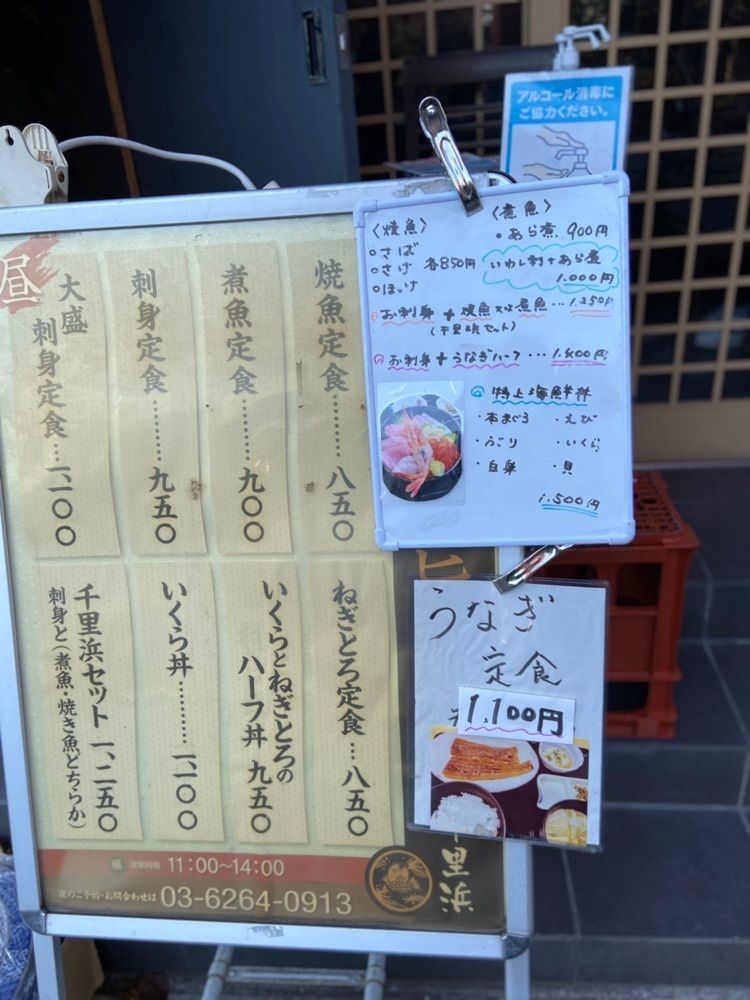 アルコール消毒に
ご協力ください。
〈焼魚〉
・さば
・さけ 各850円
・ほっけ
〈煮魚〉
・あら煮 900円
いわし刺+あら煮
1.000円
お刺身 + 焼魚又は煮魚…1.250円
(千里浜セット)
お刺身 + うなぎハーフ…
特上海鮮丼
・本まぐろ
・ぶり
・白身
・えび
・いくら
・貝
1.500円
昼
焼魚定食………八五〇
煮魚定食………九〇〇
刺身定食………九五〇
大盛
刺身定食…一、一〇〇
ねぎとろ定食…八五〇
いくらとねぎとろの
ハーフ丼 九五〇
いくら丼………一、一〇〇
千里浜セット 一、二五〇
刺身と(煮魚・焼き魚どちらか)
うなぎ
定食
1.100円
昼 営業時間 11:00~14:00
夜のご予約・お問合わせは 03-6264-0913
千里浜